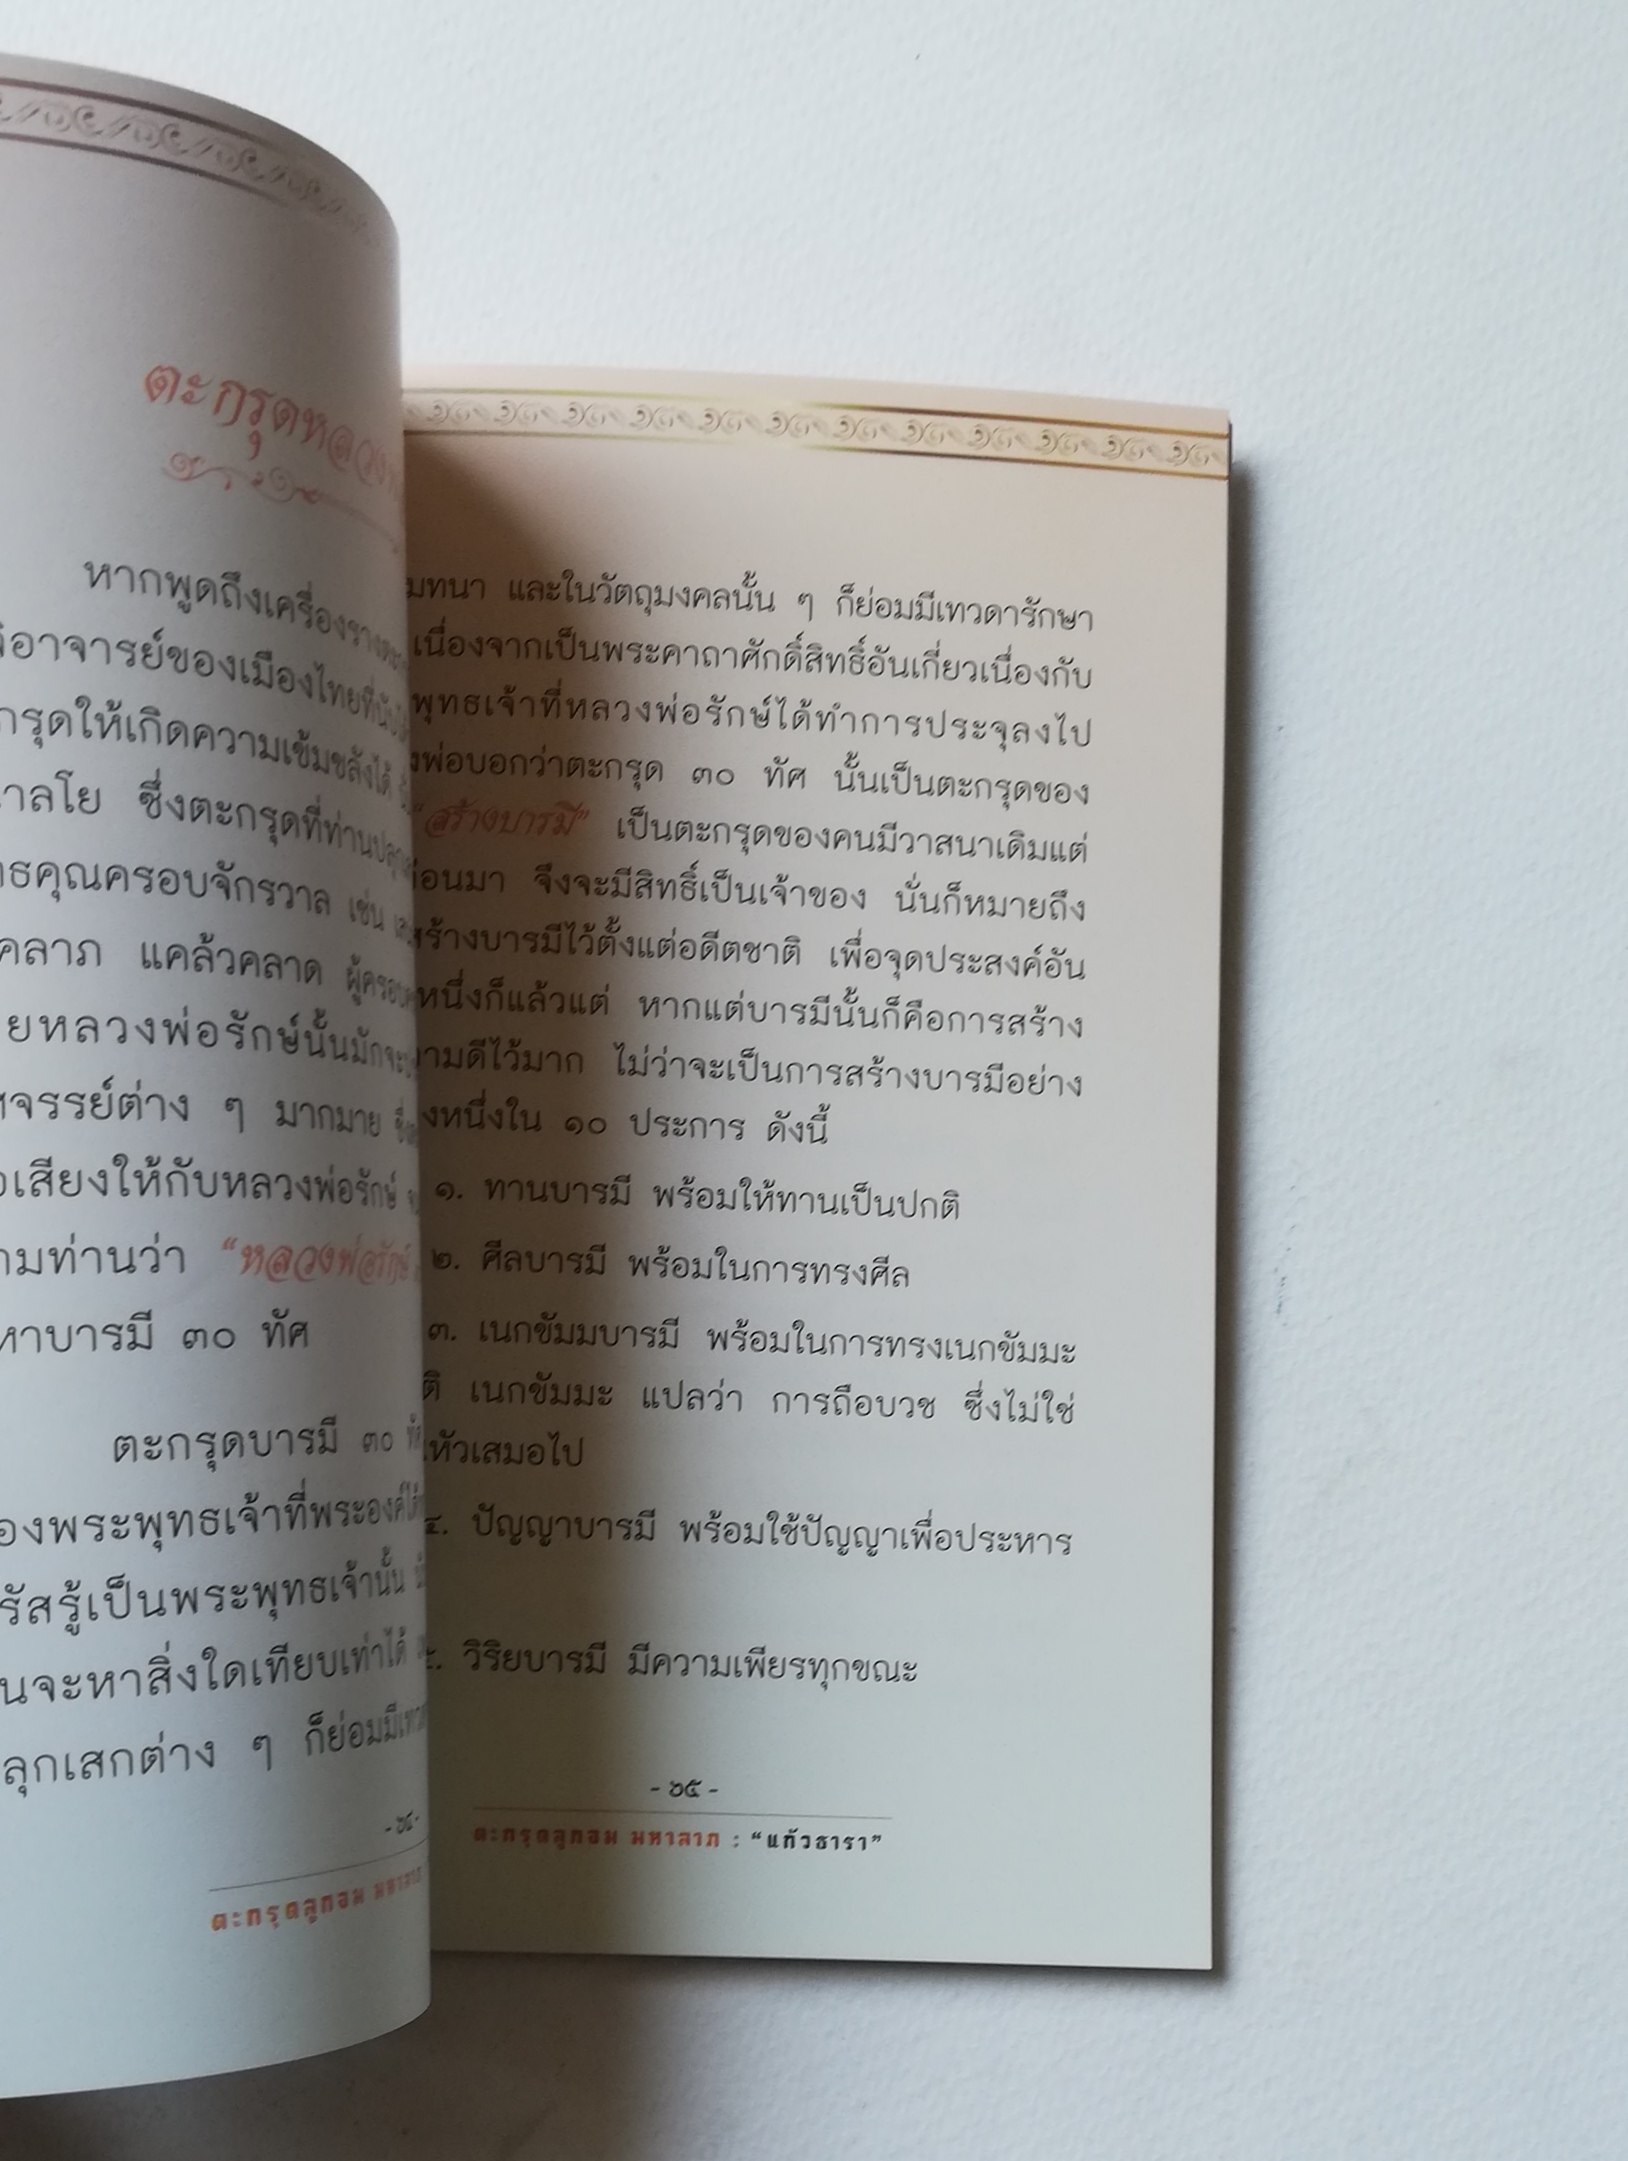 ตะกรุดหลวง
หากพูดถึงเครื่องราง
อาจารย์ของเมืองไทยที่
กรุดให้เกิดความเข้มขลังได้
ซึ่งตะกรุดที่ท่าน
คุณครอบจักรวาล เช่น
แคล้วคลาด
หลวงพ่อรักษ์นั้นมักจะ
ต่าง ๆ มากมาย
เสียงให้กับหลวงพ่อรักษ์
ท่านว่า “หลวงพ่อรักษ์
บารมี ๓๐ ทัศ
ตะกรุดบารมี ๓๐
พระพุทธเจ้าที่พระองค์
รัสรู้เป็นพระพุทธเจ้านั้น
จะหาสิ่งใดเทียบเท่าได้
ลุกเสกต่าง ๆ ก็ย่อมมี
- ๖๔ -
ตะกรุดลูกอม มหาลาภ
มทนา และในวัตถุมงคลนั้น ๆ ก็ย่อมมีเทวดารักษา
เนื่องจากเป็นพระคาถาศักดิ์สิทธิ์อันเกี่ยวเนื่องกับ
พุทธเจ้าที่หลวงพ่อรักษ์ได้ทำการประจุลงไป
พ่อบอกว่าตะกรุด ๓๐ ทัศ นั้นเป็นตะกรุดของ
“สร้างบารมี” เป็นตะกรุดของคนมีวาสนาเดิมแต่
อนมา จึงจะมีสิทธิ์เป็นเจ้าของ นั่นก็หมายถึง
สร้างบารมีไว้ตั้งแต่อดีตชาติ เพื่อจุดประสงค์อัน
หนึ่งก็แล้วแต่ หากแต่บารมีนั้นก็คือการสร้าง
วามดีไว้มาก ไม่ว่าจะเป็นการสร้างบารมีอย่าง
งหนึ่งใน ๑๐ ประการ ดังนี้
๑. ทานบารมี พร้อมให้ทานเป็นปกติ
๒. ศีลบารมี พร้อมในการทรงศีล
๓. เนกขัมมบารมี พร้อมในการทรงเนกขัมมะ
ติ เนกขัมมะ แปลว่า การถือบวช ซึ่งไม่ใช่
หัวเสมอไป
๔. ปัญญาบารมี พร้อมใช้ปัญญาเพื่อประหาร
๕. วิริยบารมี มีความเพียรทุกขณะ
- ๖๕ -
ตะกรุดลูกอม มหาลาภ : “แก้วธารา”